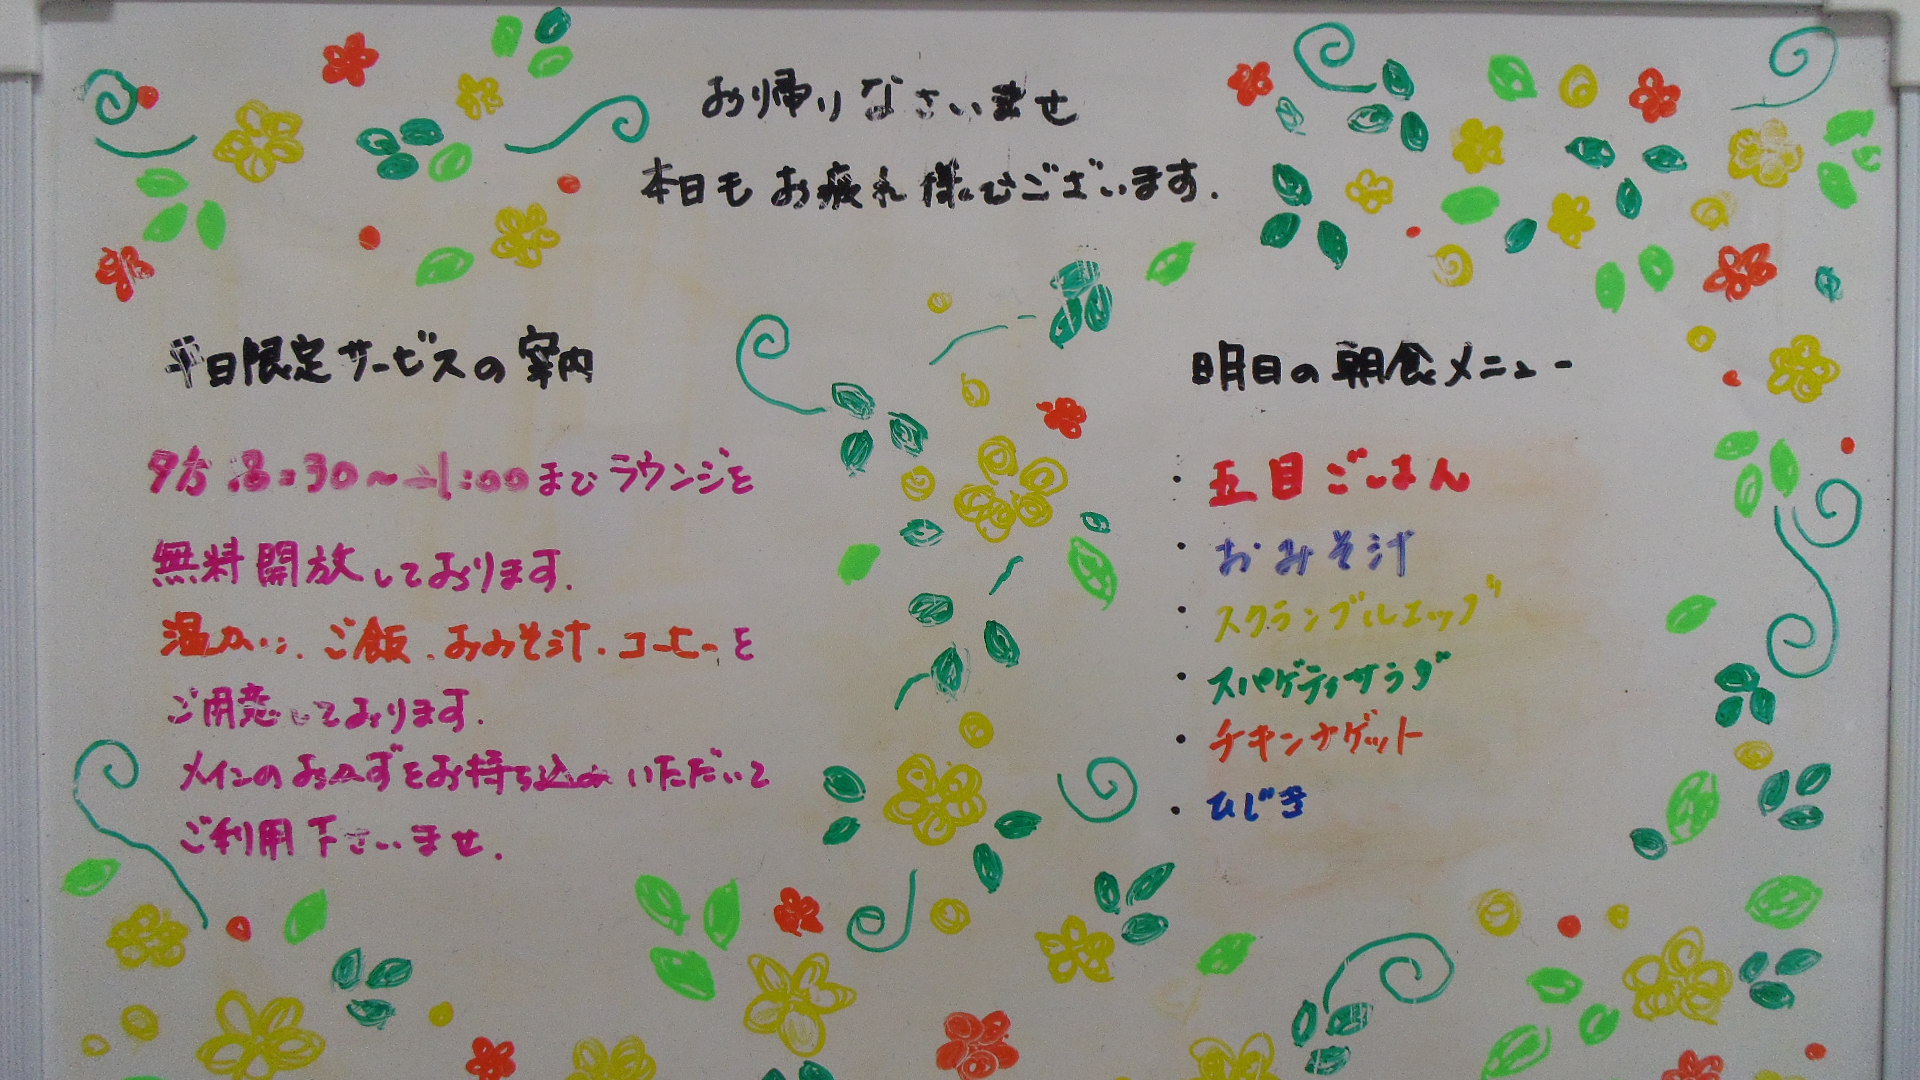 お帰りなさいませ
本日もお疲れ様でございます.
平日限定サービスの案内
夕方8:30～11:00までラウンジを
無料開放しております.
温かい、ご飯、おみそ汁・コーヒーを
ご用意しております.
メインのおかずをお持ち込みいただいて
ご利用下さいませ.
明日の朝食メニュー
・五目ごはん
・おみそ汁
・スクランブルエッグ
・スパゲティサラダ
・チキンナゲット
・ひじき